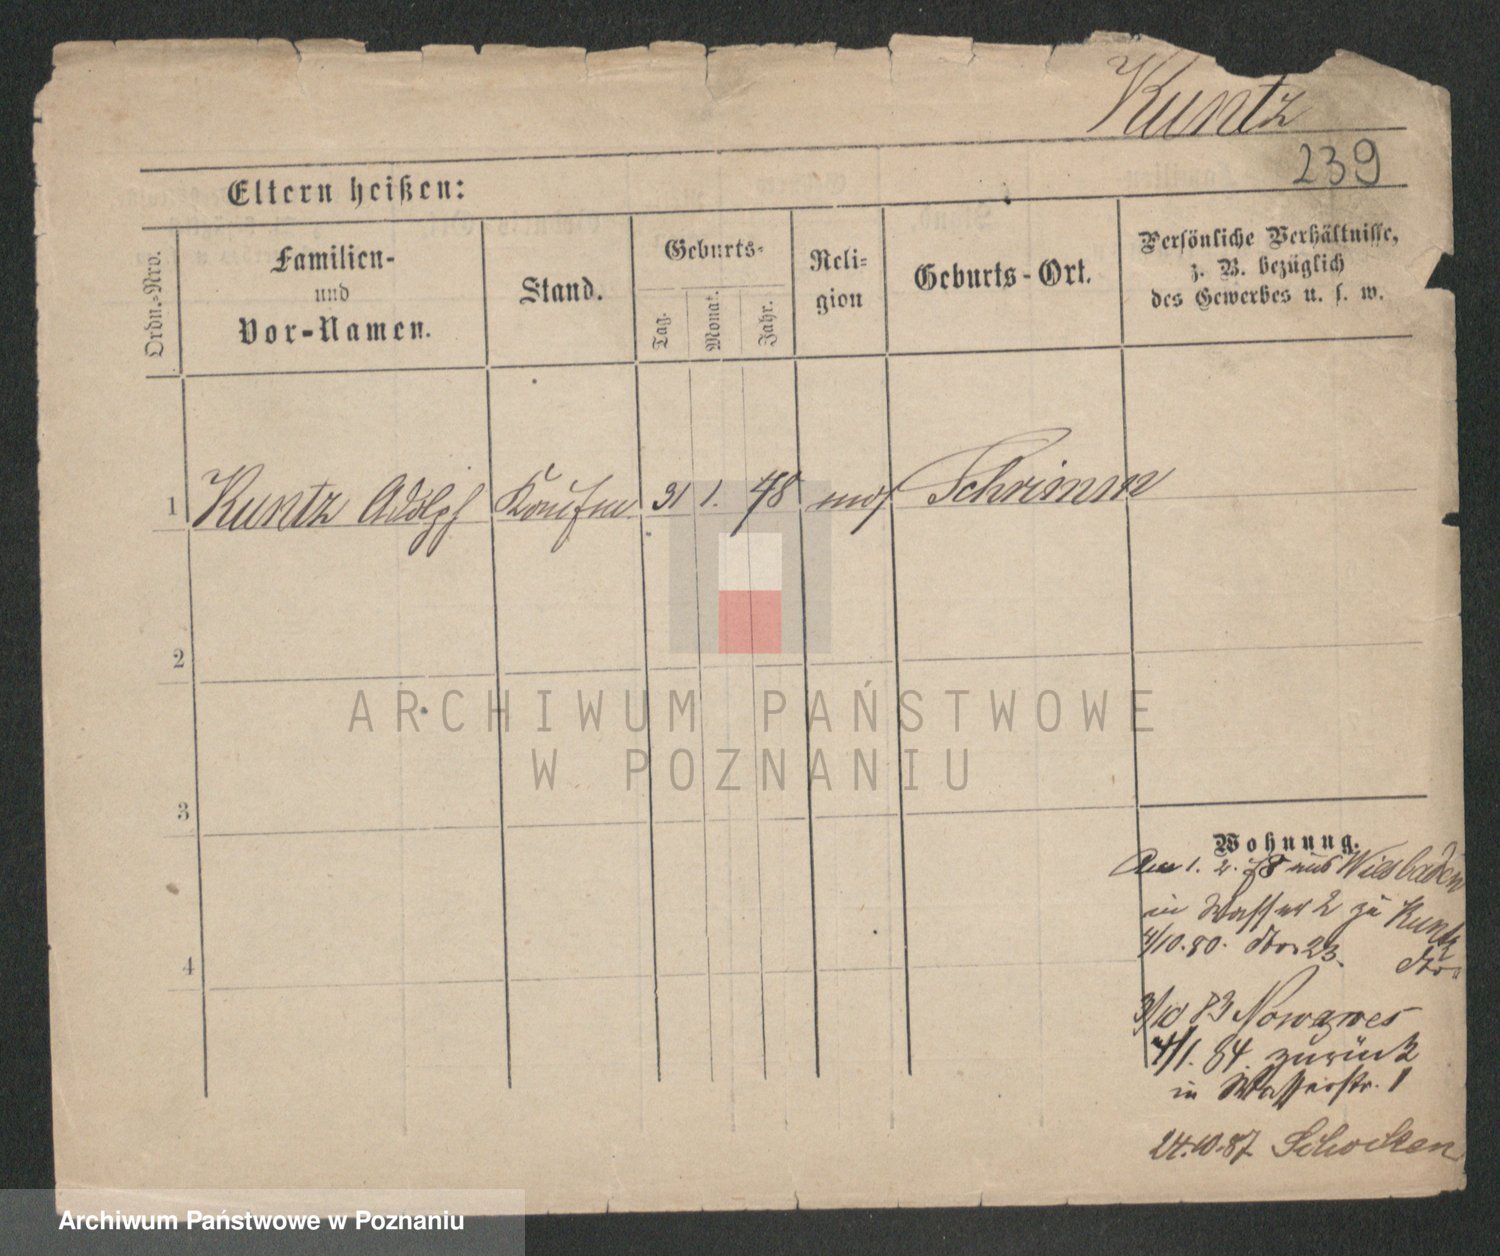 Kuntz
239
Eltern heißen:
Ordn.-Nro.
Familien-
und
Vor-Namen.
Stand.
Geburts-
Tag.
Monat.
Jahr.
Reli-
gion
Geburts-Ort.
Persönliche Verhältnisse,
z. B. bezüglich
des Gewerbes u. s. w.
1 Kuntz Adolph Kaufm. 31 1. 48 mos Schrimm
2
3
4
Wohnung.
Am 1. 2. 78 aus Wiesbaden
in Wasser 2 zu Kuntz
4/10. 80. dto 23. dto
3/10 83 Nowawes
4/1. 84. zurück
in Wasserstr. 1
24.10.87 Schocken
ARCHIWUM PAŃSTWOWE
W POZNANIU
Archiwum Państwowe w Poznaniu